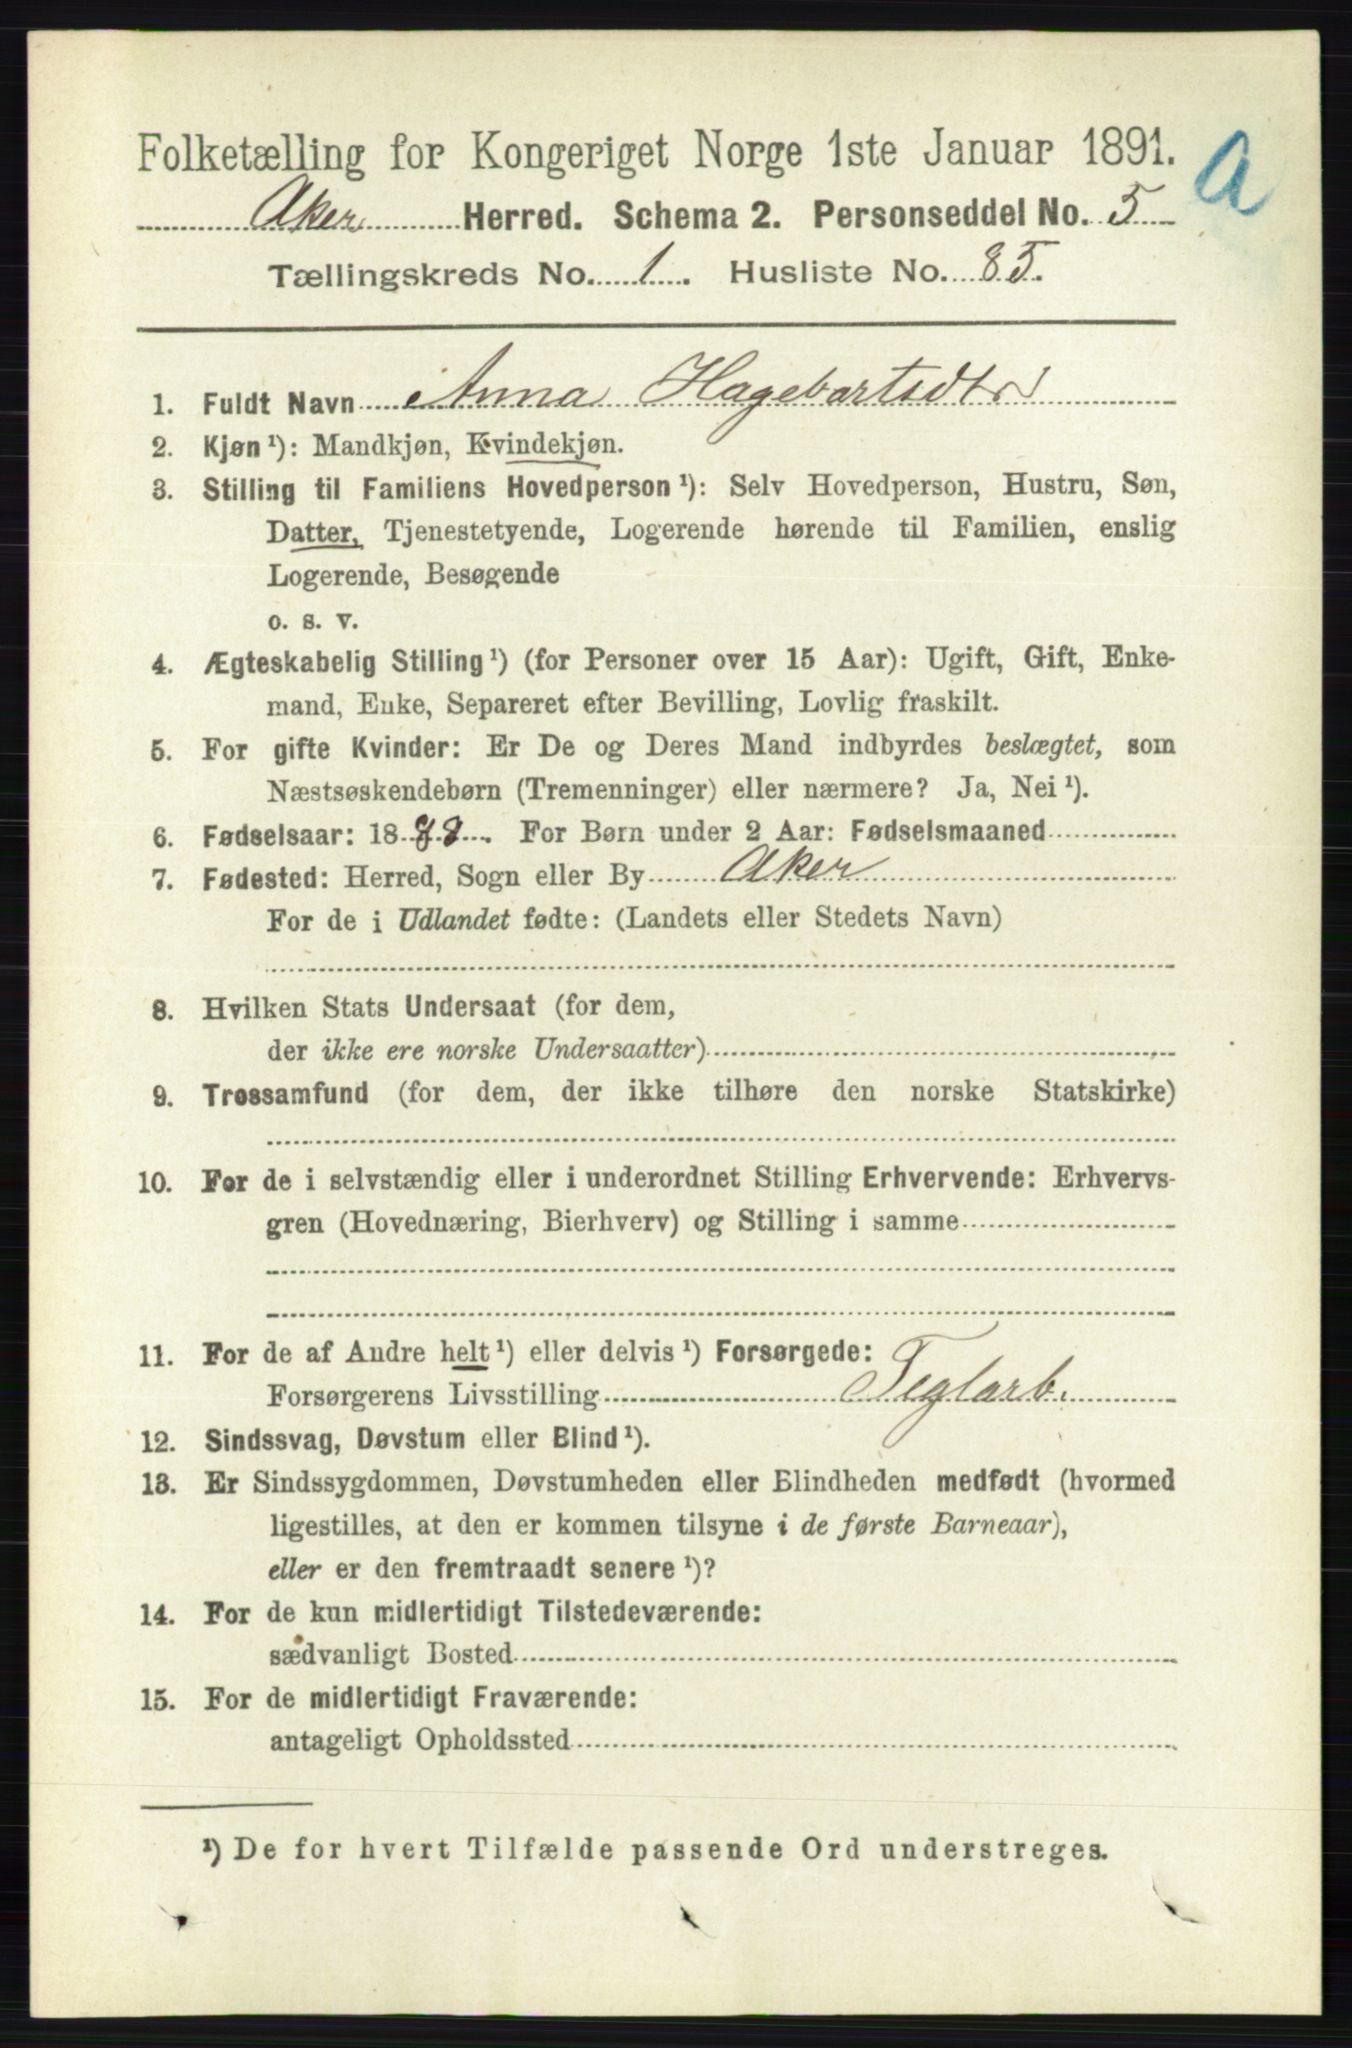 Folketælling for Kongeriget Norge 1ste Januar 1891.
A
Aker Herred. Schema 2. Personseddel No. 5
Tællingskreds No. 1. Husliste No. 85.
1. Fuldt Navn Anna Hagebartsdtr
2. Kjøn ¹): Mandkjøn, Kvindekjøn.
3. Stilling til Familiens Hovedperson ¹): Selv Hovedperson, Hustru, Søn,
Datter, Tjenestetyende, Logerende hørende til Familien, enslig
Logerende, Besøgende
o. s. v.
4. Ægteskabelig Stilling ¹) (for Personer over 15 Aar): Ugift, Gift, Enke-
mand, Enke, Separeret efter Bevilling, Lovlig fraskilt.
5. For gifte Kvinder: Er De og Deres Mand indbyrdes beslægtet, som
Næstsøskendebørn (Tremenninger) eller nærmere? Ja, Nei ¹).
6. Fødselsaar: 1888. For Børn under 2 Aar: Fødselsmaaned
7. Fødested: Herred, Sogn eller By Aker
For de i Udlandet fødte: (Landets eller Stedets Navn)
8. Hvilken Stats Undersaat (for dem,
der ikke ere norske Undersaatter)
9. Trossamfund (for dem, der ikke tilhøre den norske Statskirke)
10. For de i selvstændig eller i underordnet Stilling Erhvervende: Erhvervs-
gren (Hovednæring, Bierhverv) og Stilling i samme
11. For de af Andre helt ¹) eller delvis ¹) Forsørgede:
Forsørgerens Livsstilling Teglarb.
12. Sindssvag, Døvstum eller Blind ¹).
13. Er Sindssygdommen, Døvstumheden eller Blindheden medfødt (hvormed
ligestilles, at den er kommen tilsyne i de første Barneaar),
eller er den fremtraadt senere ¹)?
14. For de kun midlertidigt Tilstedeværende:
sædvanligt Bosted
15. For de midlertidigt Fraværende:
antageligt Opholdssted
¹) De for hvert Tilfælde passende Ord understreges.